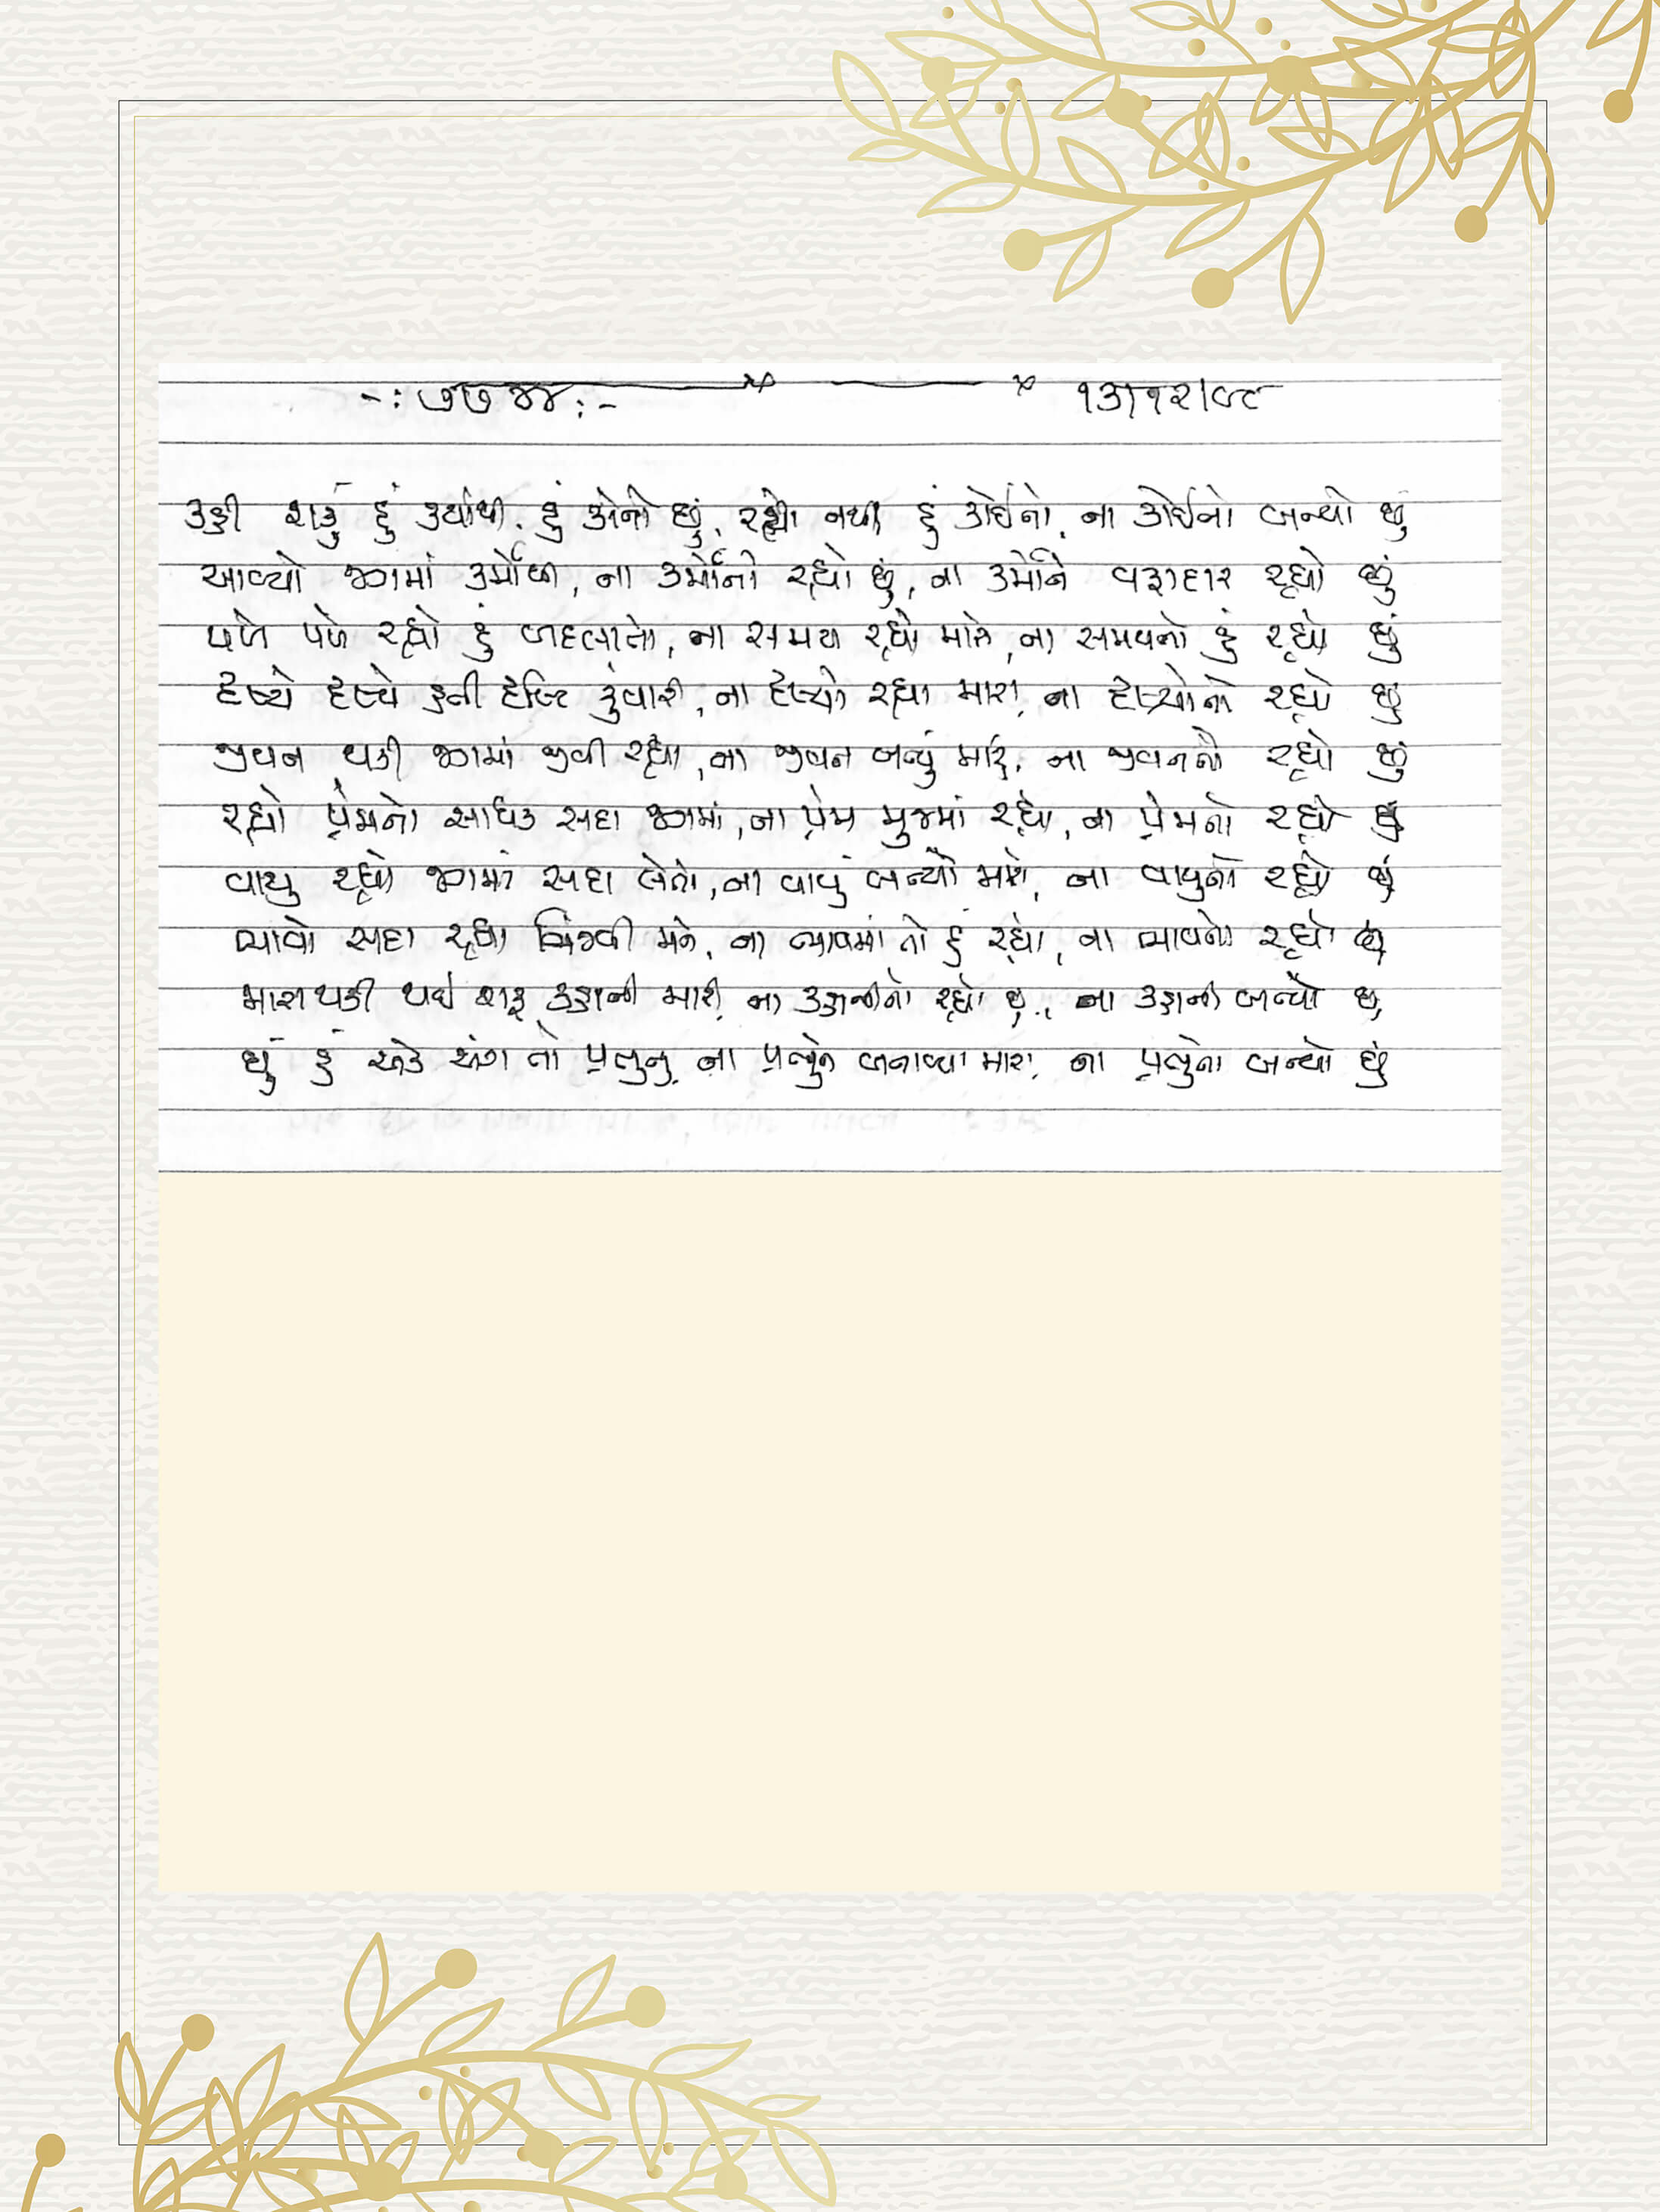 -: ૭૭૪૪ :- ૧૩/૧૨/૯૮
કહી શકું હું ક્યાંથી, હું કોનો છું, રહ્યો નથી હું કોઈનો, ના કોઈનો બન્યો છું
આવ્યો જગમાં કર્મોથી, ના કર્મોનો રહ્યો છું, ના કર્મોને વફાદાર રહ્યો છું
પળે પળે રહ્યો હું બદલાતો, ના સમય રહ્યો મારો, ના સમયનો હું રહ્યો છું
દૃશ્યે દૃશ્યે ફરી દૃષ્ટિ કુંવારી, ના દૃશ્યો રહ્યા મારા, ના દૃશ્યોનો રહ્યો છું
જીવન થકી જગમાં જીવી રહ્યો, ના જીવન બન્યું મારું, ના જીવનનો રહ્યો છું
રહ્યો પ્રેમનો સાધક સદા જગમાં, ના પ્રેમ મુજમાં રહ્યો, ના પ્રેમનો રહ્યો છું
વાયુ રહ્યો જગમાં સદા લેતો, ના વાયુ બન્યો મારો, ના વાયુનો રહ્યો છું
ભાવો સદા રહ્યા મને, ના ભાવમાં તો હું રહ્યો, ના ભાવનો રહ્યો છું
મારા થકી થઈ શરૂ કહાની મારી, ના કહાનીનો રહ્યો છું, ના કહાની બન્યો છું
છું હું એક અંગ તો પ્રભુનું, ના પ્રભુને બનાવ્યા મારા, ના પ્રભુનો બન્યો છું